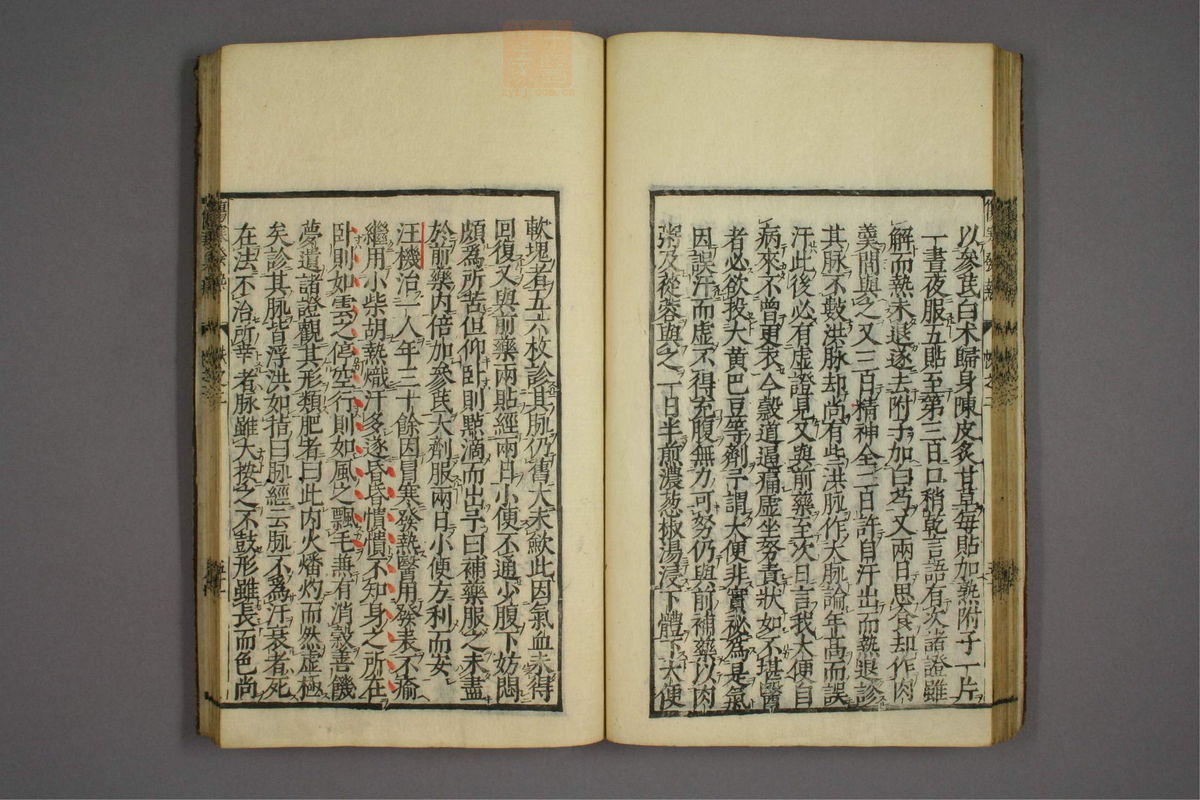 以參芪白术歸身陳皮炙甘草每貼加熟附子一片
一晝夜服五貼至第三日口稍乾言語有次諸證雖
解而熱未退遂去附子加白芍又兩日思食却作肉
羹間與之又三日精神全二日許自汗出而熱退診
其脉不數洪脉却尚有些洪脉作大脉論年髙而誤
汗此後必有虚證見又與前藥至次日言我大便自
病來不曽更衣今榖道逼痛虚坐努責狀如不堪醫
者必欲投大黄巴豆等劑予謂大便非實祕爲是氣
因誤汗而虚不得充腹無力可努仍與前補藥以肉
粥及蓯蓉與之一日半煎濃葱椒湯浸下體下大便
軟塊者五六枚診其脉仍舊大未歛此因氣血未得
回復又與前藥兩貼經兩日小便不通少腹下妨悶
頗爲所苦但仰卧則㸃滴而出予曰補藥服之未盡
於前藥内倍加參芪大劑服兩日小便方利而安
汪機治一人年三十餘因冒寒發熱醫用發表不愈
繼用小柴胡熱熾汗多遂昏昏憒憒不知身之所在
卧則如雲之停空行則如風之飄毛兼有消榖善饑
夢遺諸證觀其形類肥者曰此内火燔灼而然虚極
矣診其脉皆浮洪如指曰脉經云脉不爲汗衰者死
在法不治所幸者脉雖大按之不鼓形雖長而色尚